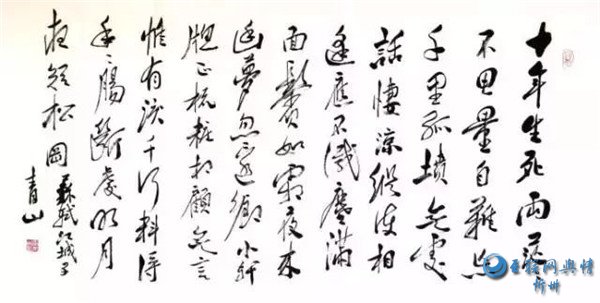 十年生死兩茫茫
不思量自難忘
千里孤墳無處
話悽涼縱使相
逢應不識塵滿
面鬢如霜夜來
幽夢忽還鄉小軒
牕正梳粧相顧無言
惟有淚千行料得
年々腸斷處明月
夜短松岡 蘇軾江城子
青山
网舆情
忻州